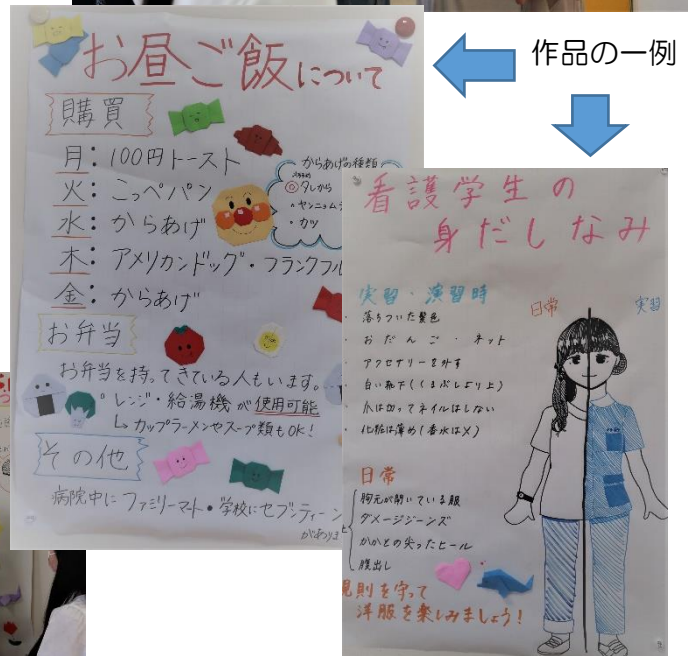 作品の一例
お昼ご飯について
購買
月：100円トースト
火：こっぺパン
水：からあげ
木：アメリカンドッグ・フランクフル
金：からあげ
からあげの種類
タレから
ヤンニョム
・カツ
お弁当
お弁当を持ってきている人もいます。
レンジ・給湯機が使用可能
↳カップラーメンやスープ類もOK！
その他
病院中にファミリーマート・学校にセブンティーン
があります
看護学生の
身だしなみ
実習・演習時
・落ちついた髪色
・おだんご・ネット
・アクセサリーを外す
・白い靴下(くるぶしより上)
・爪は切ってネイルはしない
・化粧は薄め(香水は×)
日常
実習
日常
胸元が開いている服
ダメージジーンズ
かかとの尖ったヒール
腹出し
規則を守って
洋服を楽しみましょう！